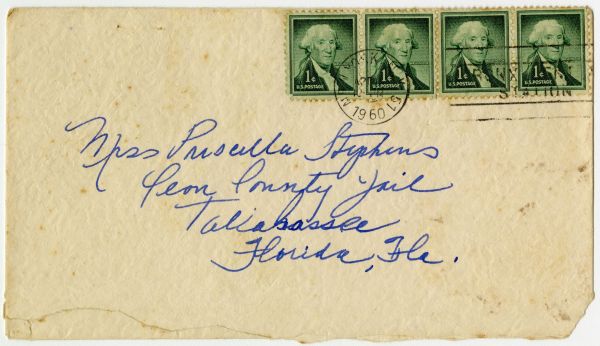 1¢ 1¢ 1¢ 1¢
U.S.POSTAGE U.S.POSTAGE U.S.POSTAGE U.S.POSTAGE
YORK
N
1960
STATION
Miss Priscilla Stephens
Leon County Jail
Tallahassee
Florida, Fla.